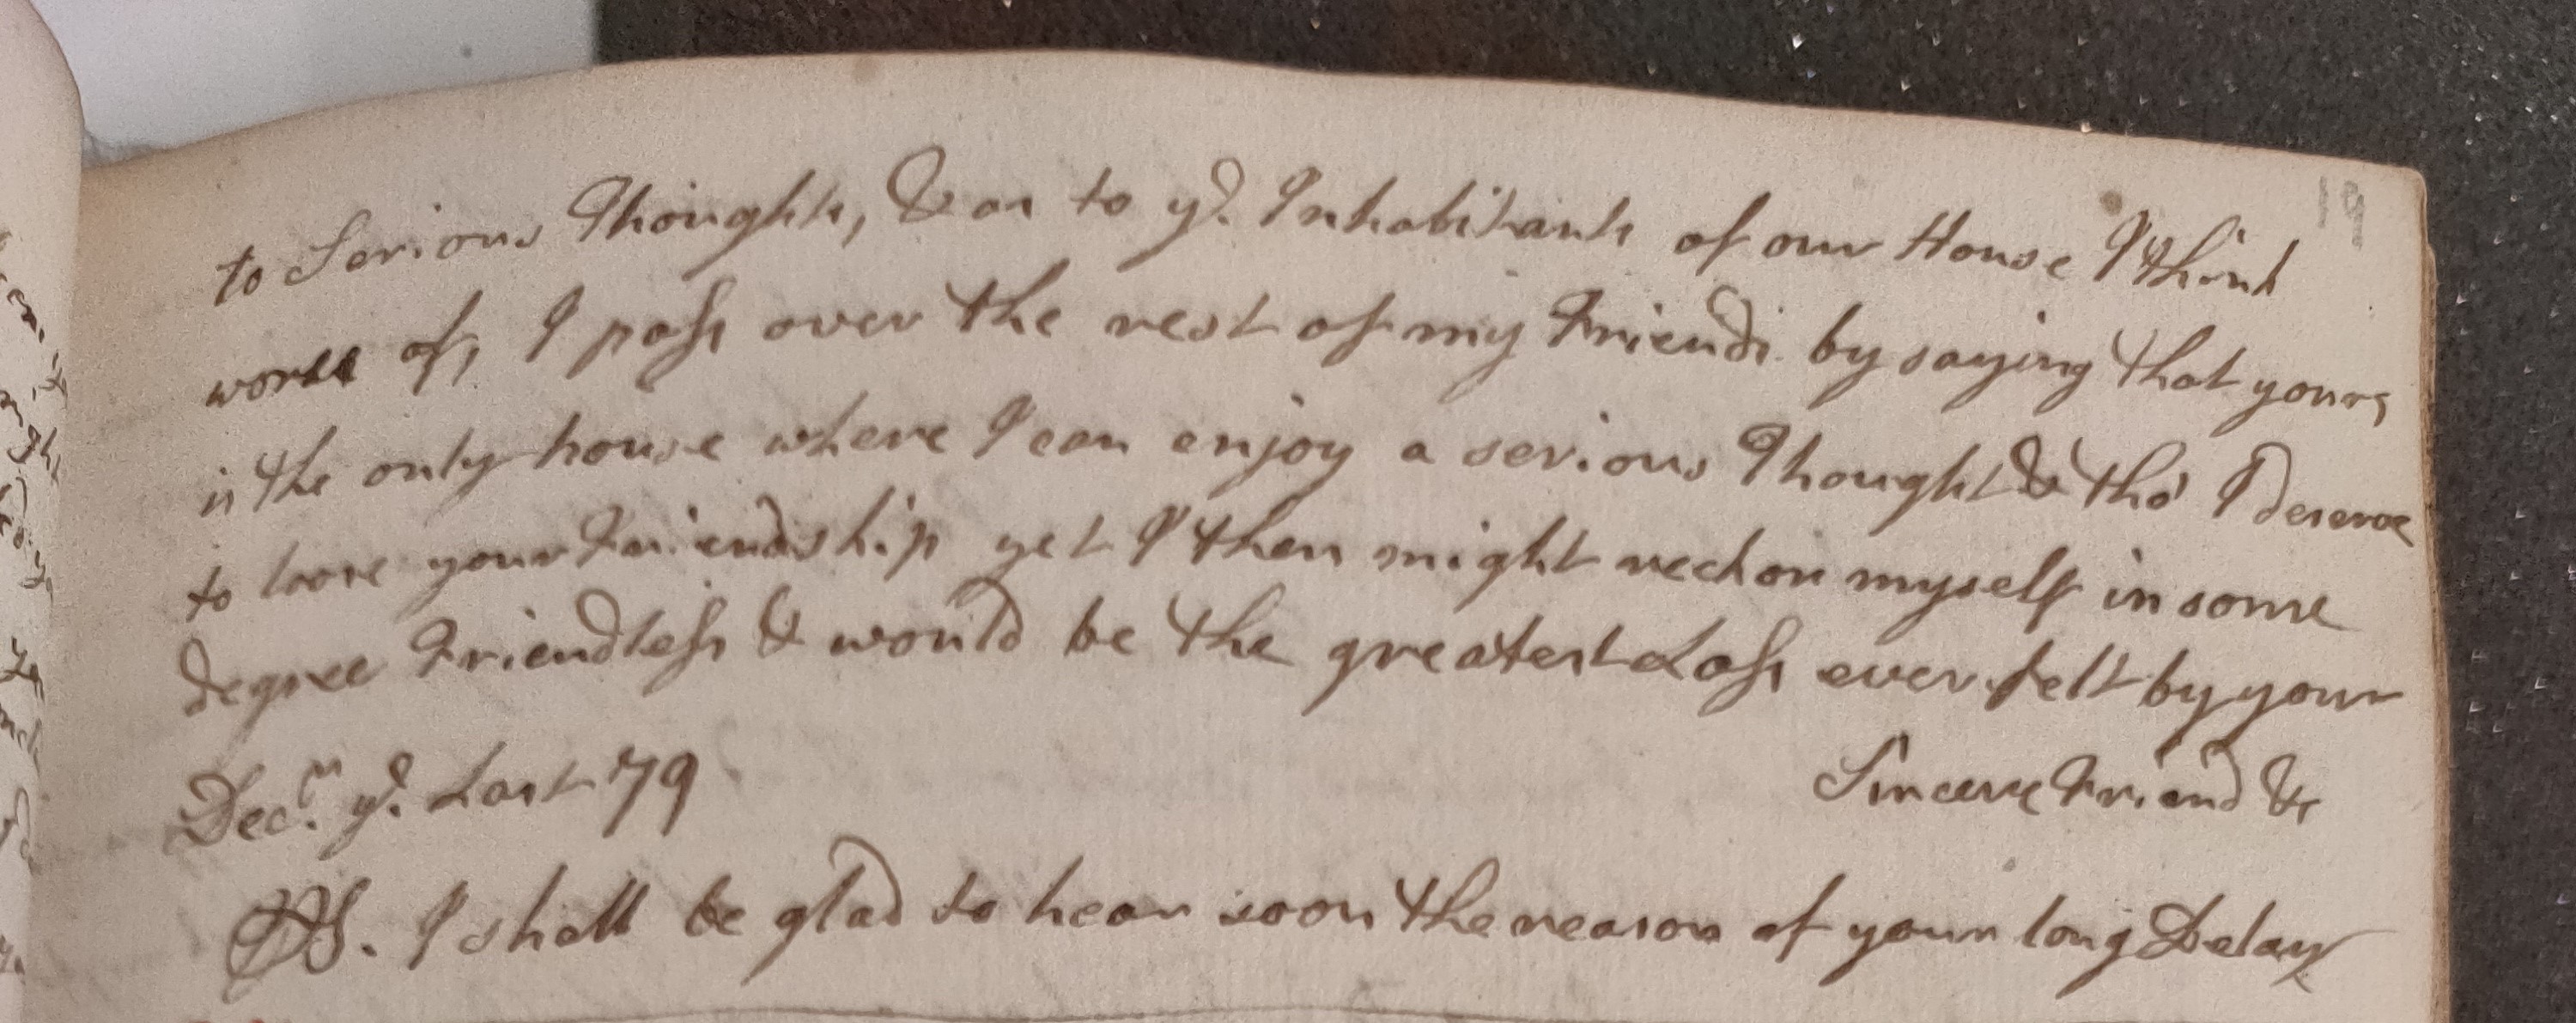 to Serious Thoughts, & as to ye. Inhabitants of our House I think
worse of, I pass over the rest of my Friends by saying that yours
is the only house where I can enjoy a serious Thought & tho' I deserve
to loose your Friendship yet I then might reckon myself in some
degree Friendless & would be the greatest Loss ever felt by your
Sincere Friend &c
Decr. ye. Last 79
PS. I shall be glad to hear soon the reason of your long Delay
19